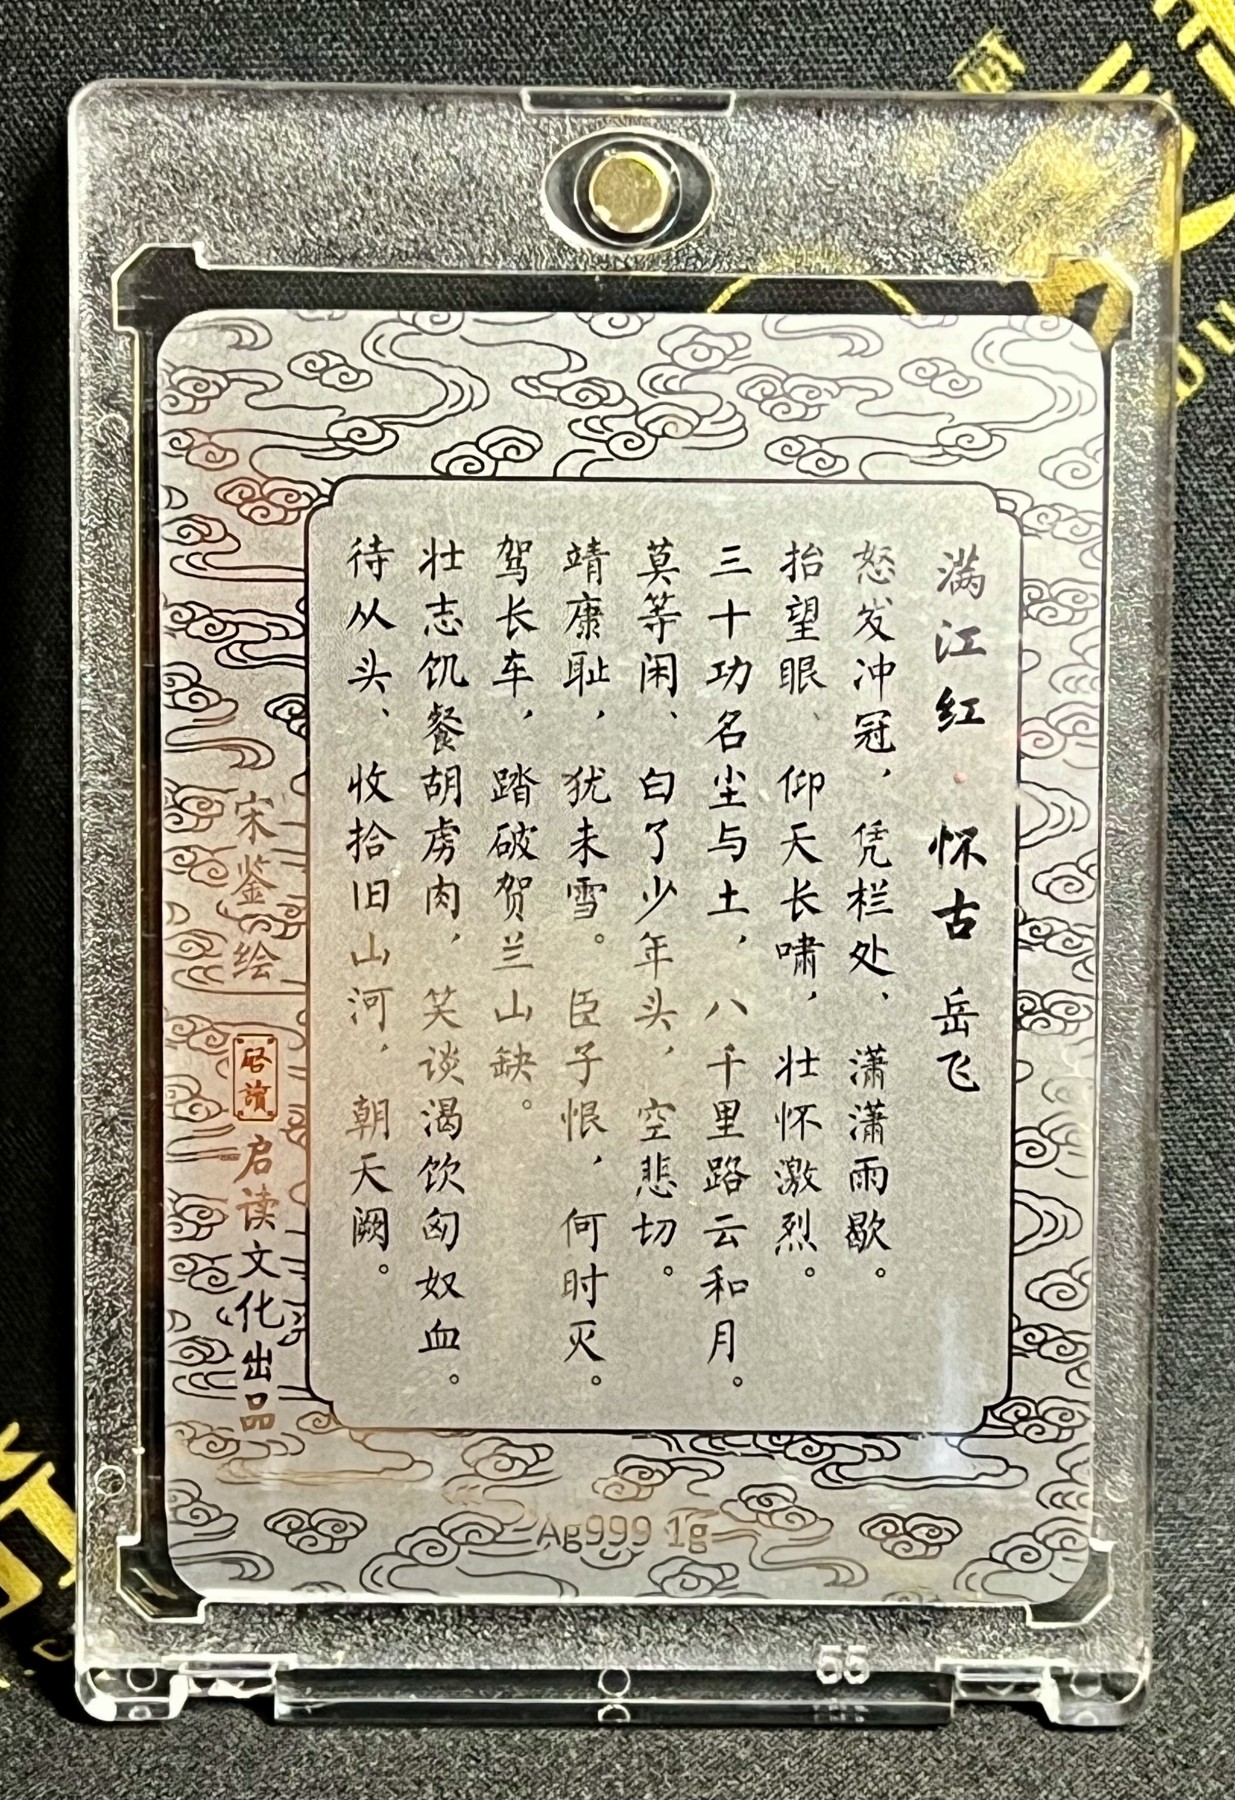 满江红 怀古 岳飞
怒发冲冠，凭栏处、潇潇雨歇。
抬望眼、仰天长啸，壮怀激烈。
三十功名尘与土，八千里路云和月。
莫等闲、白了少年头，空悲切。
靖康耻，犹未雪。臣子恨，何时灭。
驾长车，踏破贺兰山缺。
壮志饥餐胡虏肉，笑谈渴饮匈奴血。
待从头、收拾旧山河，朝天阙。
宋鉴绘
启读 启读文化出品
Ag999 1g
55